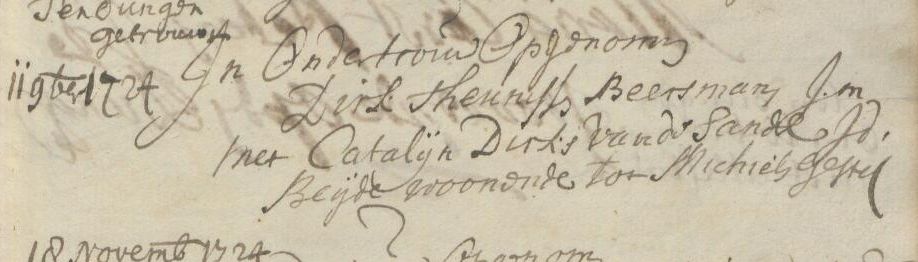 Ten Dungen
getrouwt
11 9ber 1724 In Ondertrouw Opgenomen
Dirk Theuniss Beersmans J.m
met Catalijn Dirks Vande Sande Jd.
Beijde woonende tot Michielsgestel
18 Novemb 1724